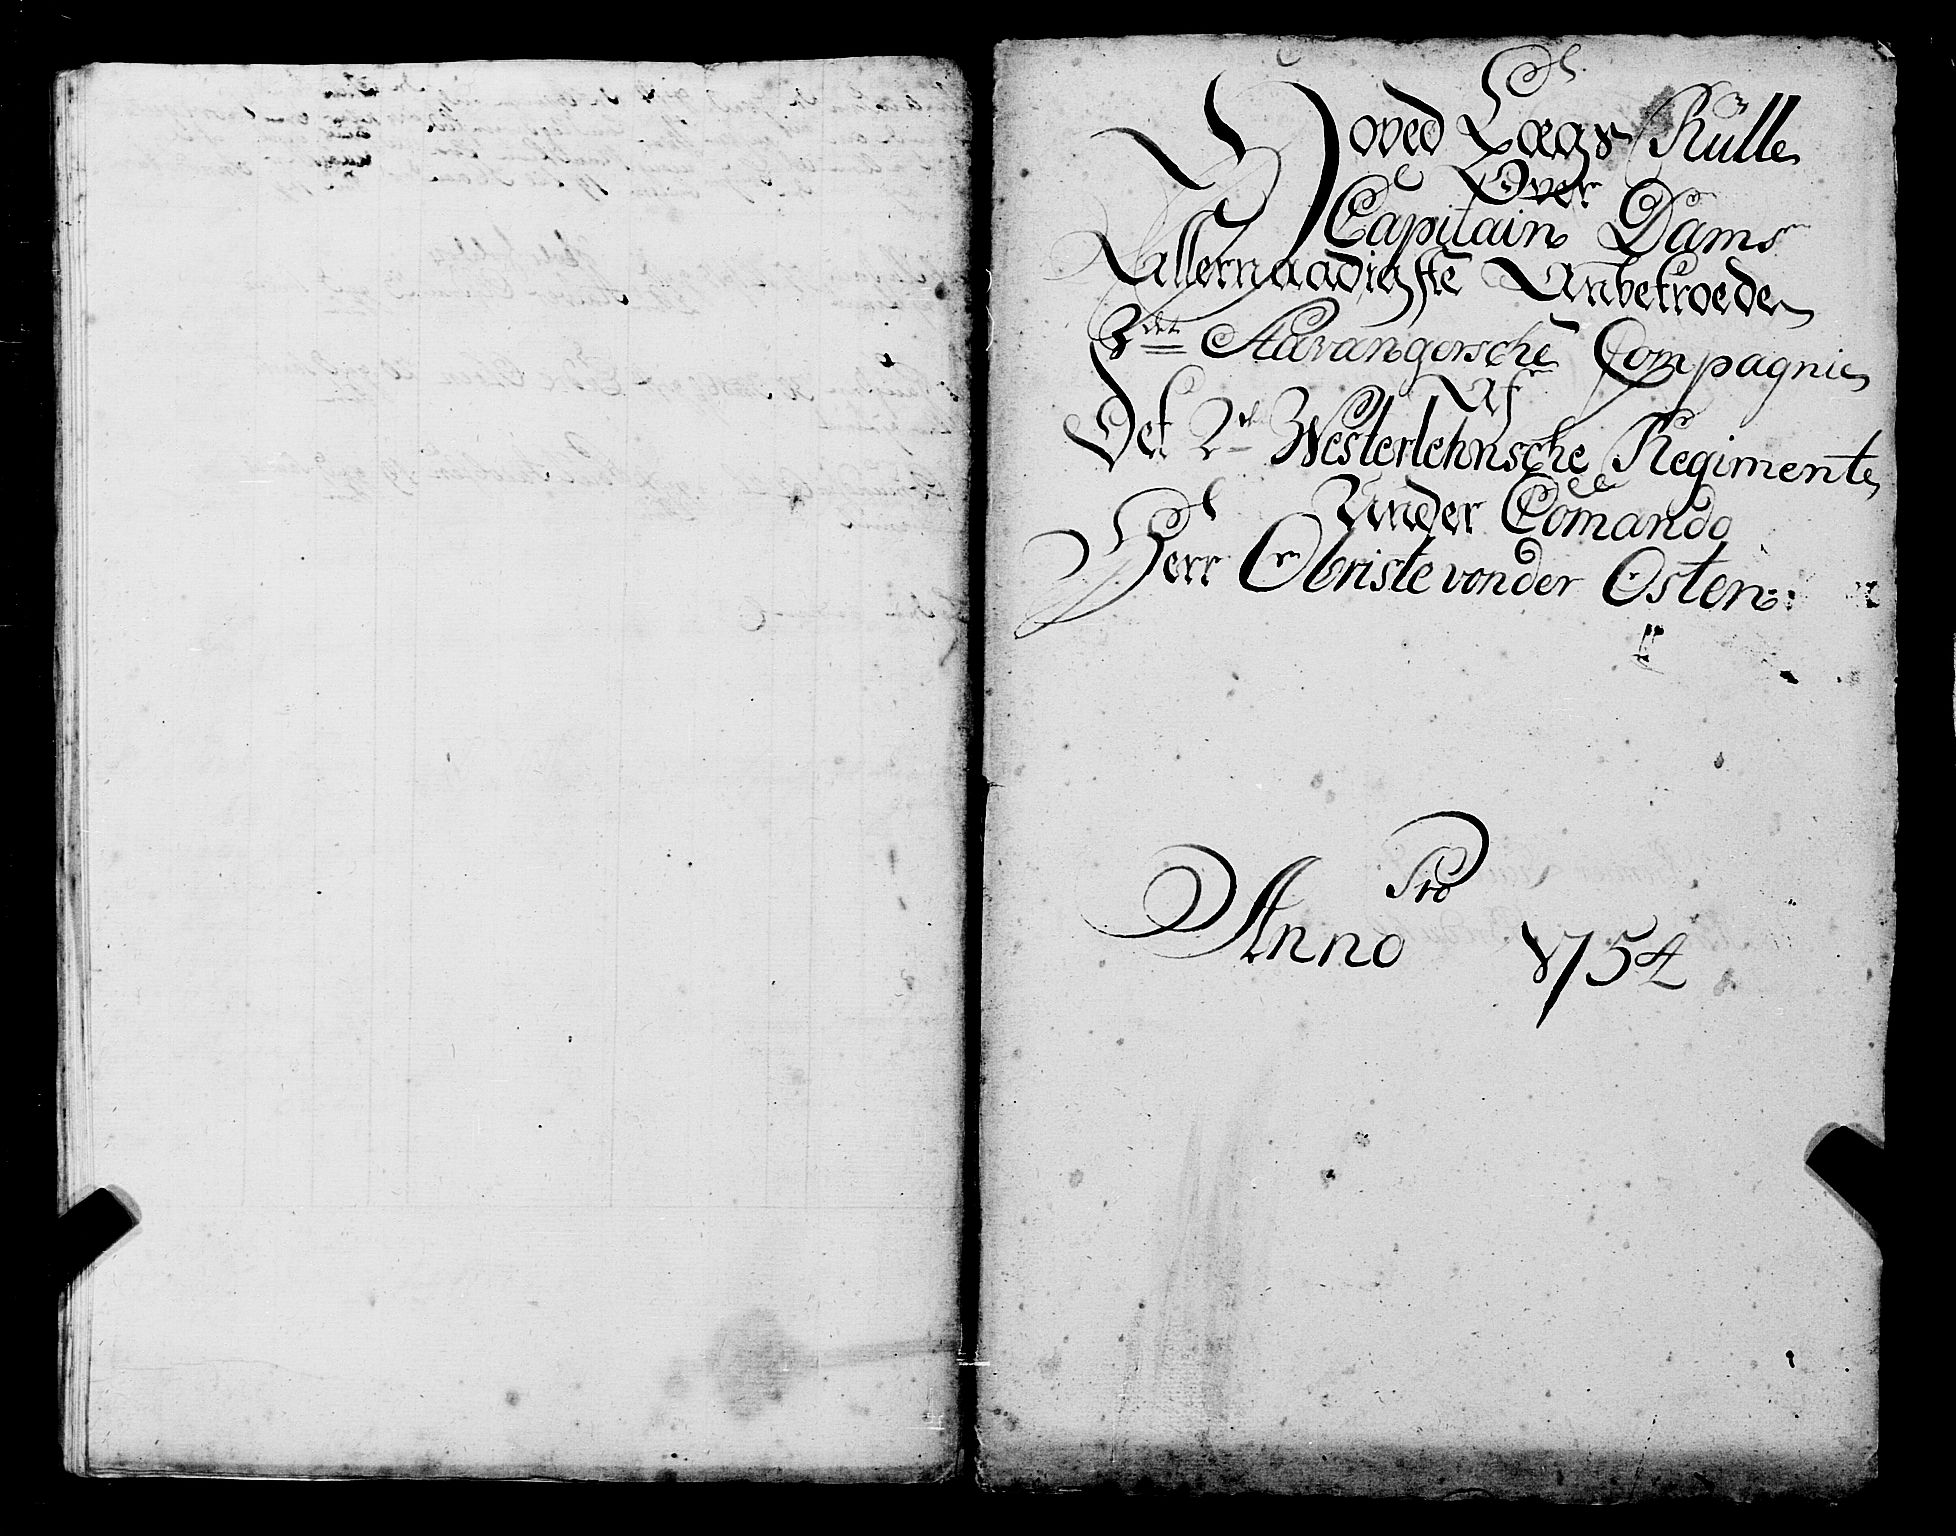 Hoved Lægs Rulle
Over
Capitain Dams
Allernaadigste Anbetroede
3det Stavangersche Compagnie
Af
Det 2det Westerlehnsche Regimente
Under Comando
Herr Obriste von der Osten
Pro
Anno 1754